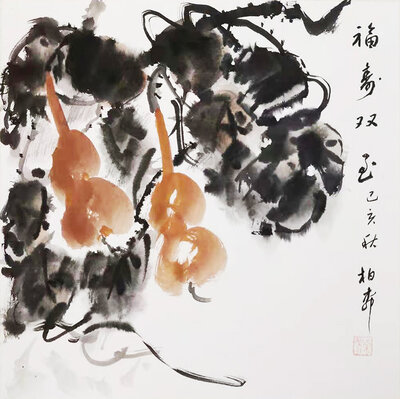 福寿双至
己亥秋 柏